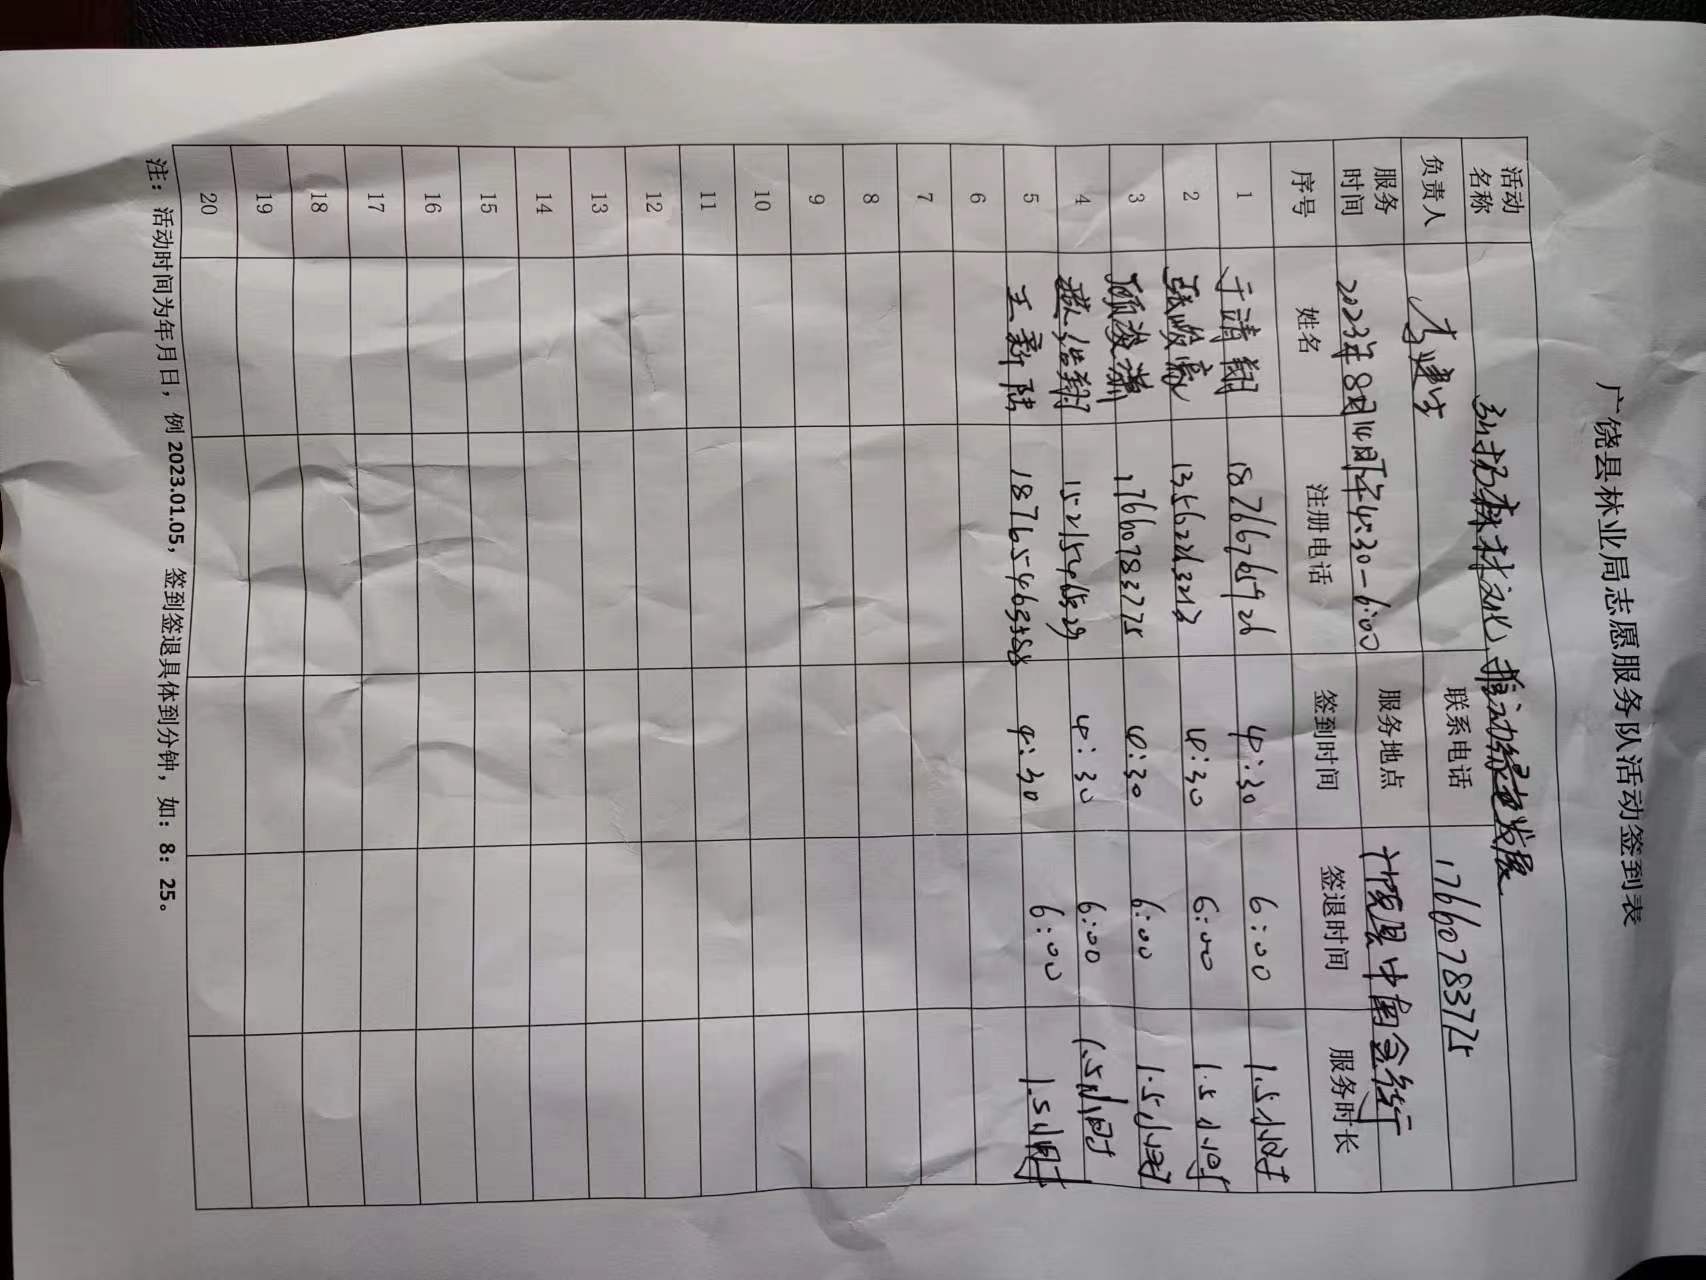 广饶县林业局志愿服务队活动签到表
活动名称 弘扬森林文化，推动绿色发展
负责人 李建宇 联系电话 17660783775
服务时间 2023年8月14日下午4:30-6:00 服务地点 广饶县中南合街
序号 姓名 注册电话 签到时间 签退时间 服务时长
1 于靖翔 18766765926 4:30 6:00 1.5小时
2 张峻豪 4:30 6:00 1.5小时
3 17660783775 4:30 6:00 1.5小时
4 燕浩翔 15215465329 4:30 6:00 1.5小时
5 王新陆 4:30 6:00 1.5小时
6
7
8
9
10
11
12
13
14
15
16
17
18
19
20
注：活动时间为年月日，例 2023.01.05，签到签退具体到分钟，如：8：25。